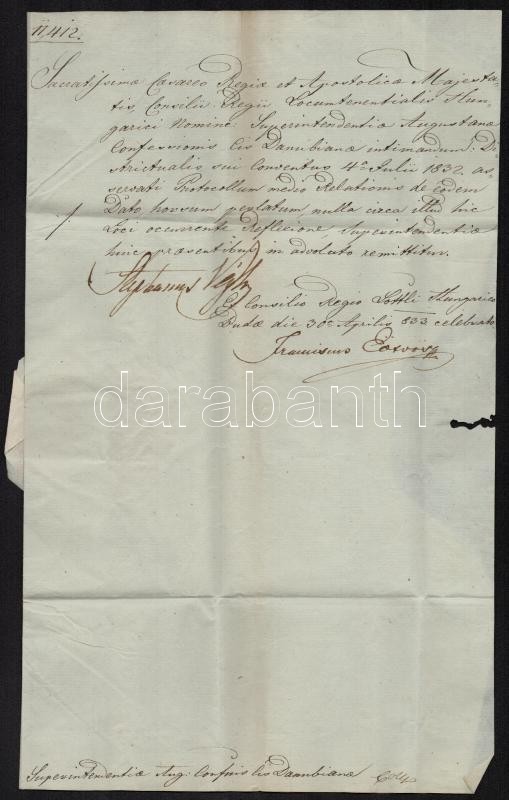 11,412.
Sacratissimæ Cæsareo Regiæ et Apostolicæ Majesta-
tis, Consilii Regii Locumtenentialis Hun-
garici Nomine: Superintendentiæ Augustanæ
Confessionis Cis Danubianæ intimandum: Di-
strictualis sui Conventus 4a Julii 1832. as-
servati Protocollum medio Relationis de eodem
Dato horsum perlatum nulla circa illud hic
Loci occurrente Reflexione Superintendentiæ
huic præsentibus in advoluto remittitur.
Stephanus Végh
Ex Consilio Regio Lottli Hungarico
Budæ die 30a Aprilis 833 celebrato
Franciscus Eötvös
darabanth
Superintendentiæ Aug: Confnis Cis Danubianæ